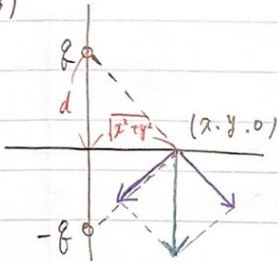 )
q
d
√x²+y²
(x, y, 0)
-q